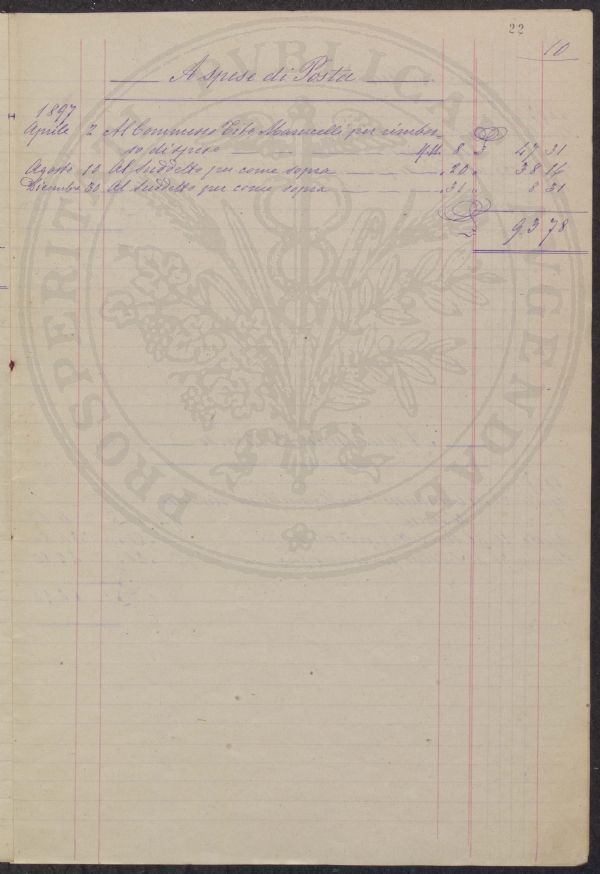 22
10
A spese di Posta
1897
Aprile 2 Al Commesso Tito Marucelli per rimbor
so di spese M.to 8 . 3 47 31
Agosto 10 Al Suddetto per come sopra . 20 . 38 16
Dicembre 31 Al Suddetto per come sopra . 31 . 8 31
93 78
PROSPERITATI PUBLICAE AUGENDAE